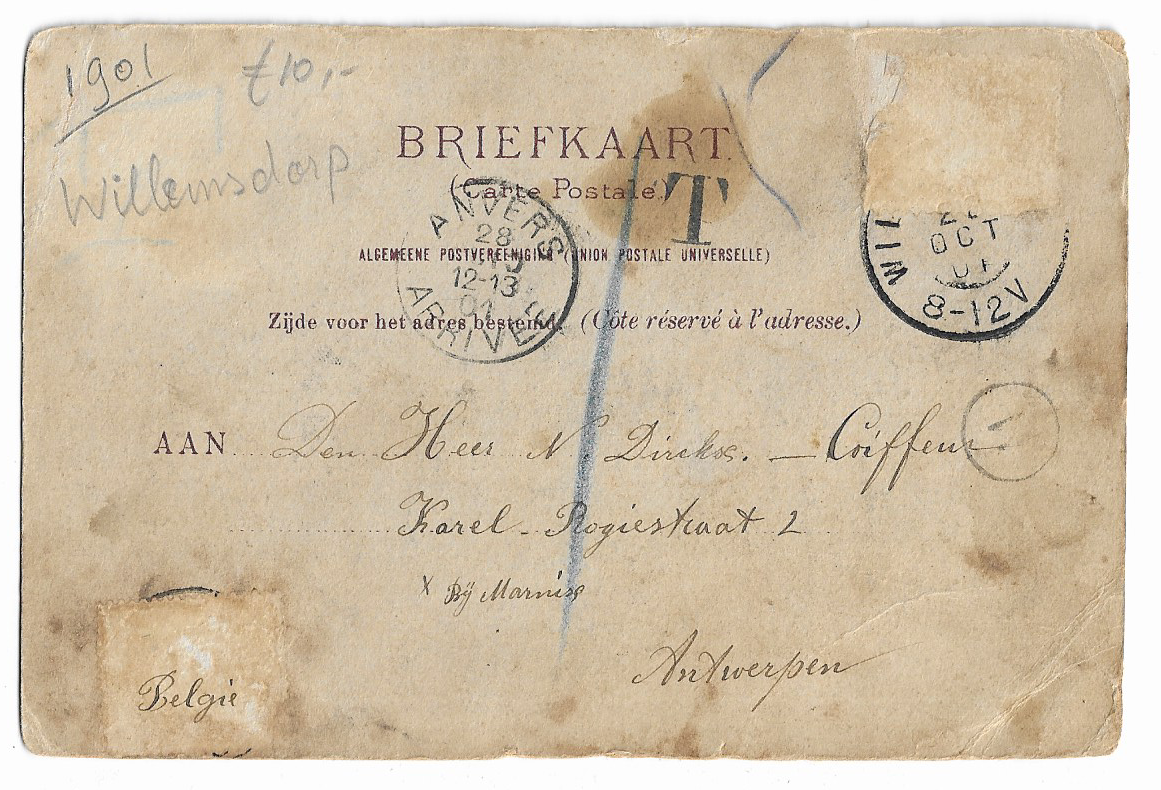 1901
€10,-
Willemsdorp
BRIEFKAART.
(Carte Postale)
T
ALGEMEENE POSTVEREENIGING (UNION POSTALE UNIVERSELLE)
Zijde voor het adres bestemd. (Côte réservé à l'adresse.)
ANVERS
28
12-13
01
ARRIVÉE
WIL
OCT
01
8-12V
1
AAN Den Heer N. Dirckx. — Coiffeur
Karel-Rogiestraat 2
x Bÿ Marnix
Antwerpen
België